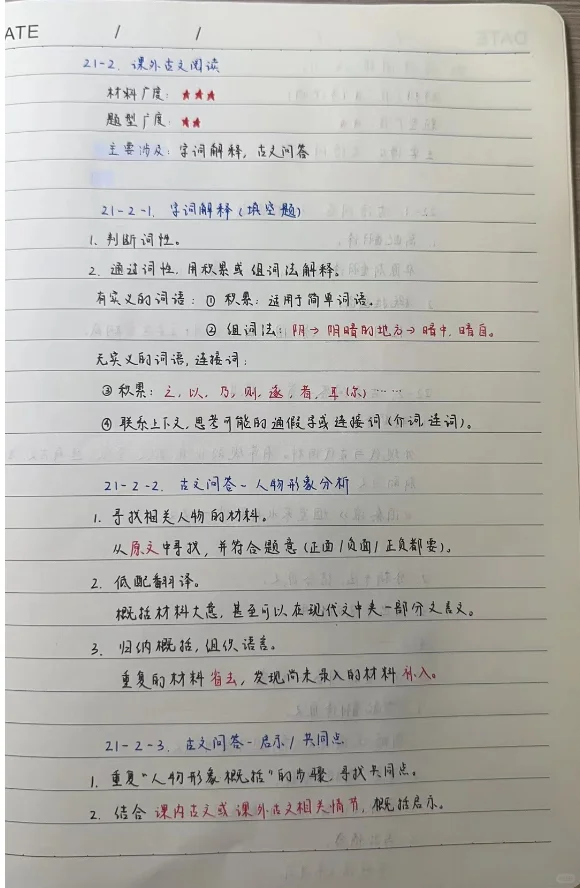 ATE / /
21-2. 课外古文阅读
材料广度: ★★★
题型广度: ★★
主要涉及: 字词解释, 古文问答
21-2-1. 字词解释 (填空题)
1. 判断词性。
2. 通过词性, 用积累或组词法解释。
有实义的词语: ① 积累: 适用于简单词语。
② 组词法: 阴→阴暗的地方→暗中, 暗自。
无实义的词语, 连接词:
③ 积累: 之, 以, 乃, 则, 遂, 者, 耳(尔)……
④ 联系上下文, 思考可能的通假字或连接词 (介词, 连词)。
21-2-2. 古文问答~人物形象分析
1. 寻找相关人物的材料。
从原文中寻找, 并符合题意 (正面/负面/正负都要)。
2. 低配翻译。
概括材料大意, 甚至可以在现代文中夹一部分文言文。
3. 归纳概括, 组织语言。
重复的材料省去, 发现尚未录入的材料补入。
21-2-3. 古文问答-启示/共同点
1. 重复"人物形象概括"的步骤, 寻找共同点。
2. 结合课内古文或课外古文相关情节, 概括启示。